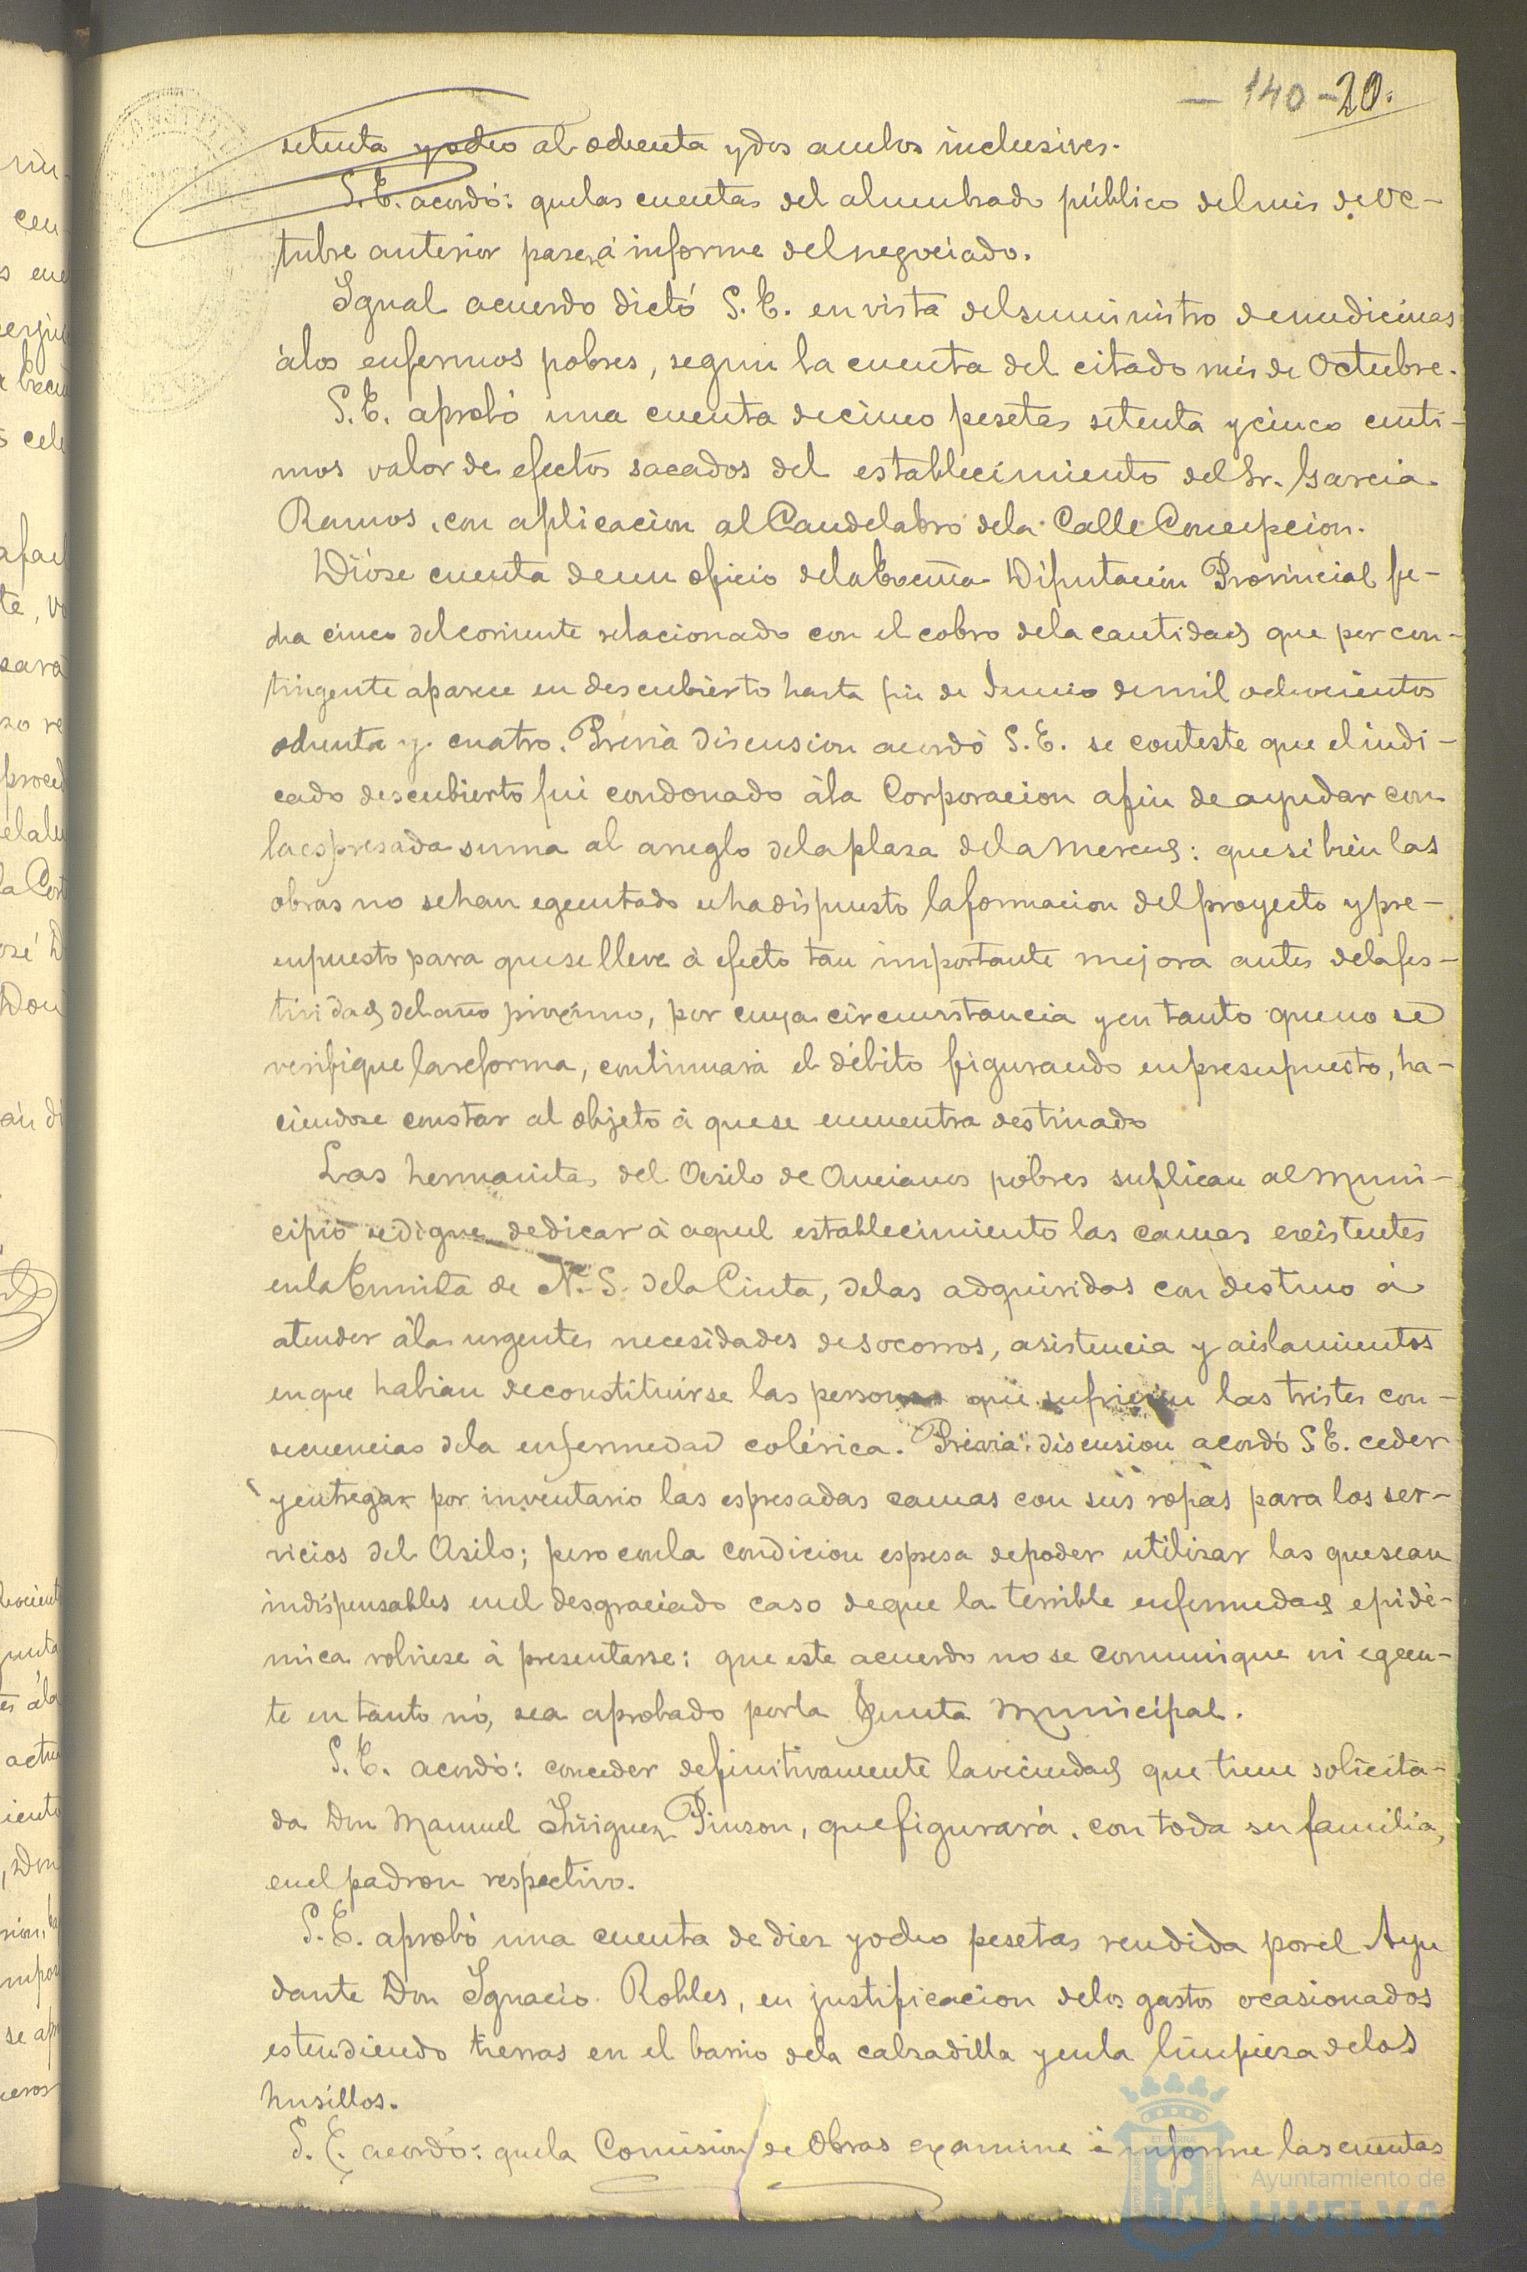 — 140 - 20.
setenta y ocho al ochenta y dos ambos inclusives.
S. E. acordó: que las cuentas del alumbrado público del mes de Oc-
tubre anterior pasen á informe del negociado.
Igual acuerdo dictó S. E. en vista del suministro de medicinas
á los enfermos pobres, segun la cuenta del citado mes de Octubre.
S. E. aprobó una cuenta de cinco pesetas setenta y cinco centi-
mos valor de efectos sacados del establecimiento del Sr. Garcia
Ramos, con aplicacion al Candelabro de la Calle Concepcion.
Dióse cuenta de un oficio de la Excma Diputacion Provincial fe-
cha cinco del corriente relacionado con el cobro de la cantidad que por con-
tingente aparece en descubierto hasta fin de Junio de mil ochocientos
ochenta y cuatro. Prévia discusion acordó S. E. se conteste que el indi-
cado descubierto fué condonado á la Corporacion a fin de ayudar con
la espresada suma al arreglo de la plaza de la Merced: que si bien las
obras no se han egecutado se ha dispuesto la formacion del proyecto y pre-
supuesto para que se lleve á efecto tan importante mejora antes de la fes-
tividad del año próximo, por cuya circunstancia y en tanto que no se
verifique la reforma, continuará el débito figurando en presupuesto, ha-
ciendose constar al objeto á que se encuentra destinado
Las hermanitas del Asilo de Ancianos pobres suplican al Muni-
cipio se digne dedicar á aquel establecimiento las camas existentes
en la Ermita de N. S. de la Cinta, de las adquiridas con destino á
atender á las urgentes necesidades de socorros, asistencia y aislamientos
en que habian de constituirse las personas que sufrieran las tristes con-
secuencias de la enfermedad colérica. Prévia discusion acordó S. E. ceder
y entregar por inventario las espresadas camas con sus ropas para los ser-
vicios del Asilo; pero con la condicion espresa de poder utilizar las que sean
indispensables en el desgraciado caso de que la terrible enfermedad epidé-
mica volviese á presentarse: que este acuerdo no se comunique ni egecu-
te en tanto nó, sea aprobado por la Junta Municipal.
S. E. acordó: conceder definitivamente la vecindad que tiene solicita-
da Don Manuel Iñiguez Pinzon, que figurará, con toda su familia,
en el padron respectivo.
S. E. aprobó una cuenta de diez y ocho pesetas rendida por el Ayu
dante Don Ignacio Robles, en justificacion de los gastos ocasionados
estendiendo tierras en el barrio de la calzadilla y en la limpieza de los
husillos.
S. E. acordó: que la Comision de Obras examine é informe las cuentas
Ayuntamiento de
HUELVA